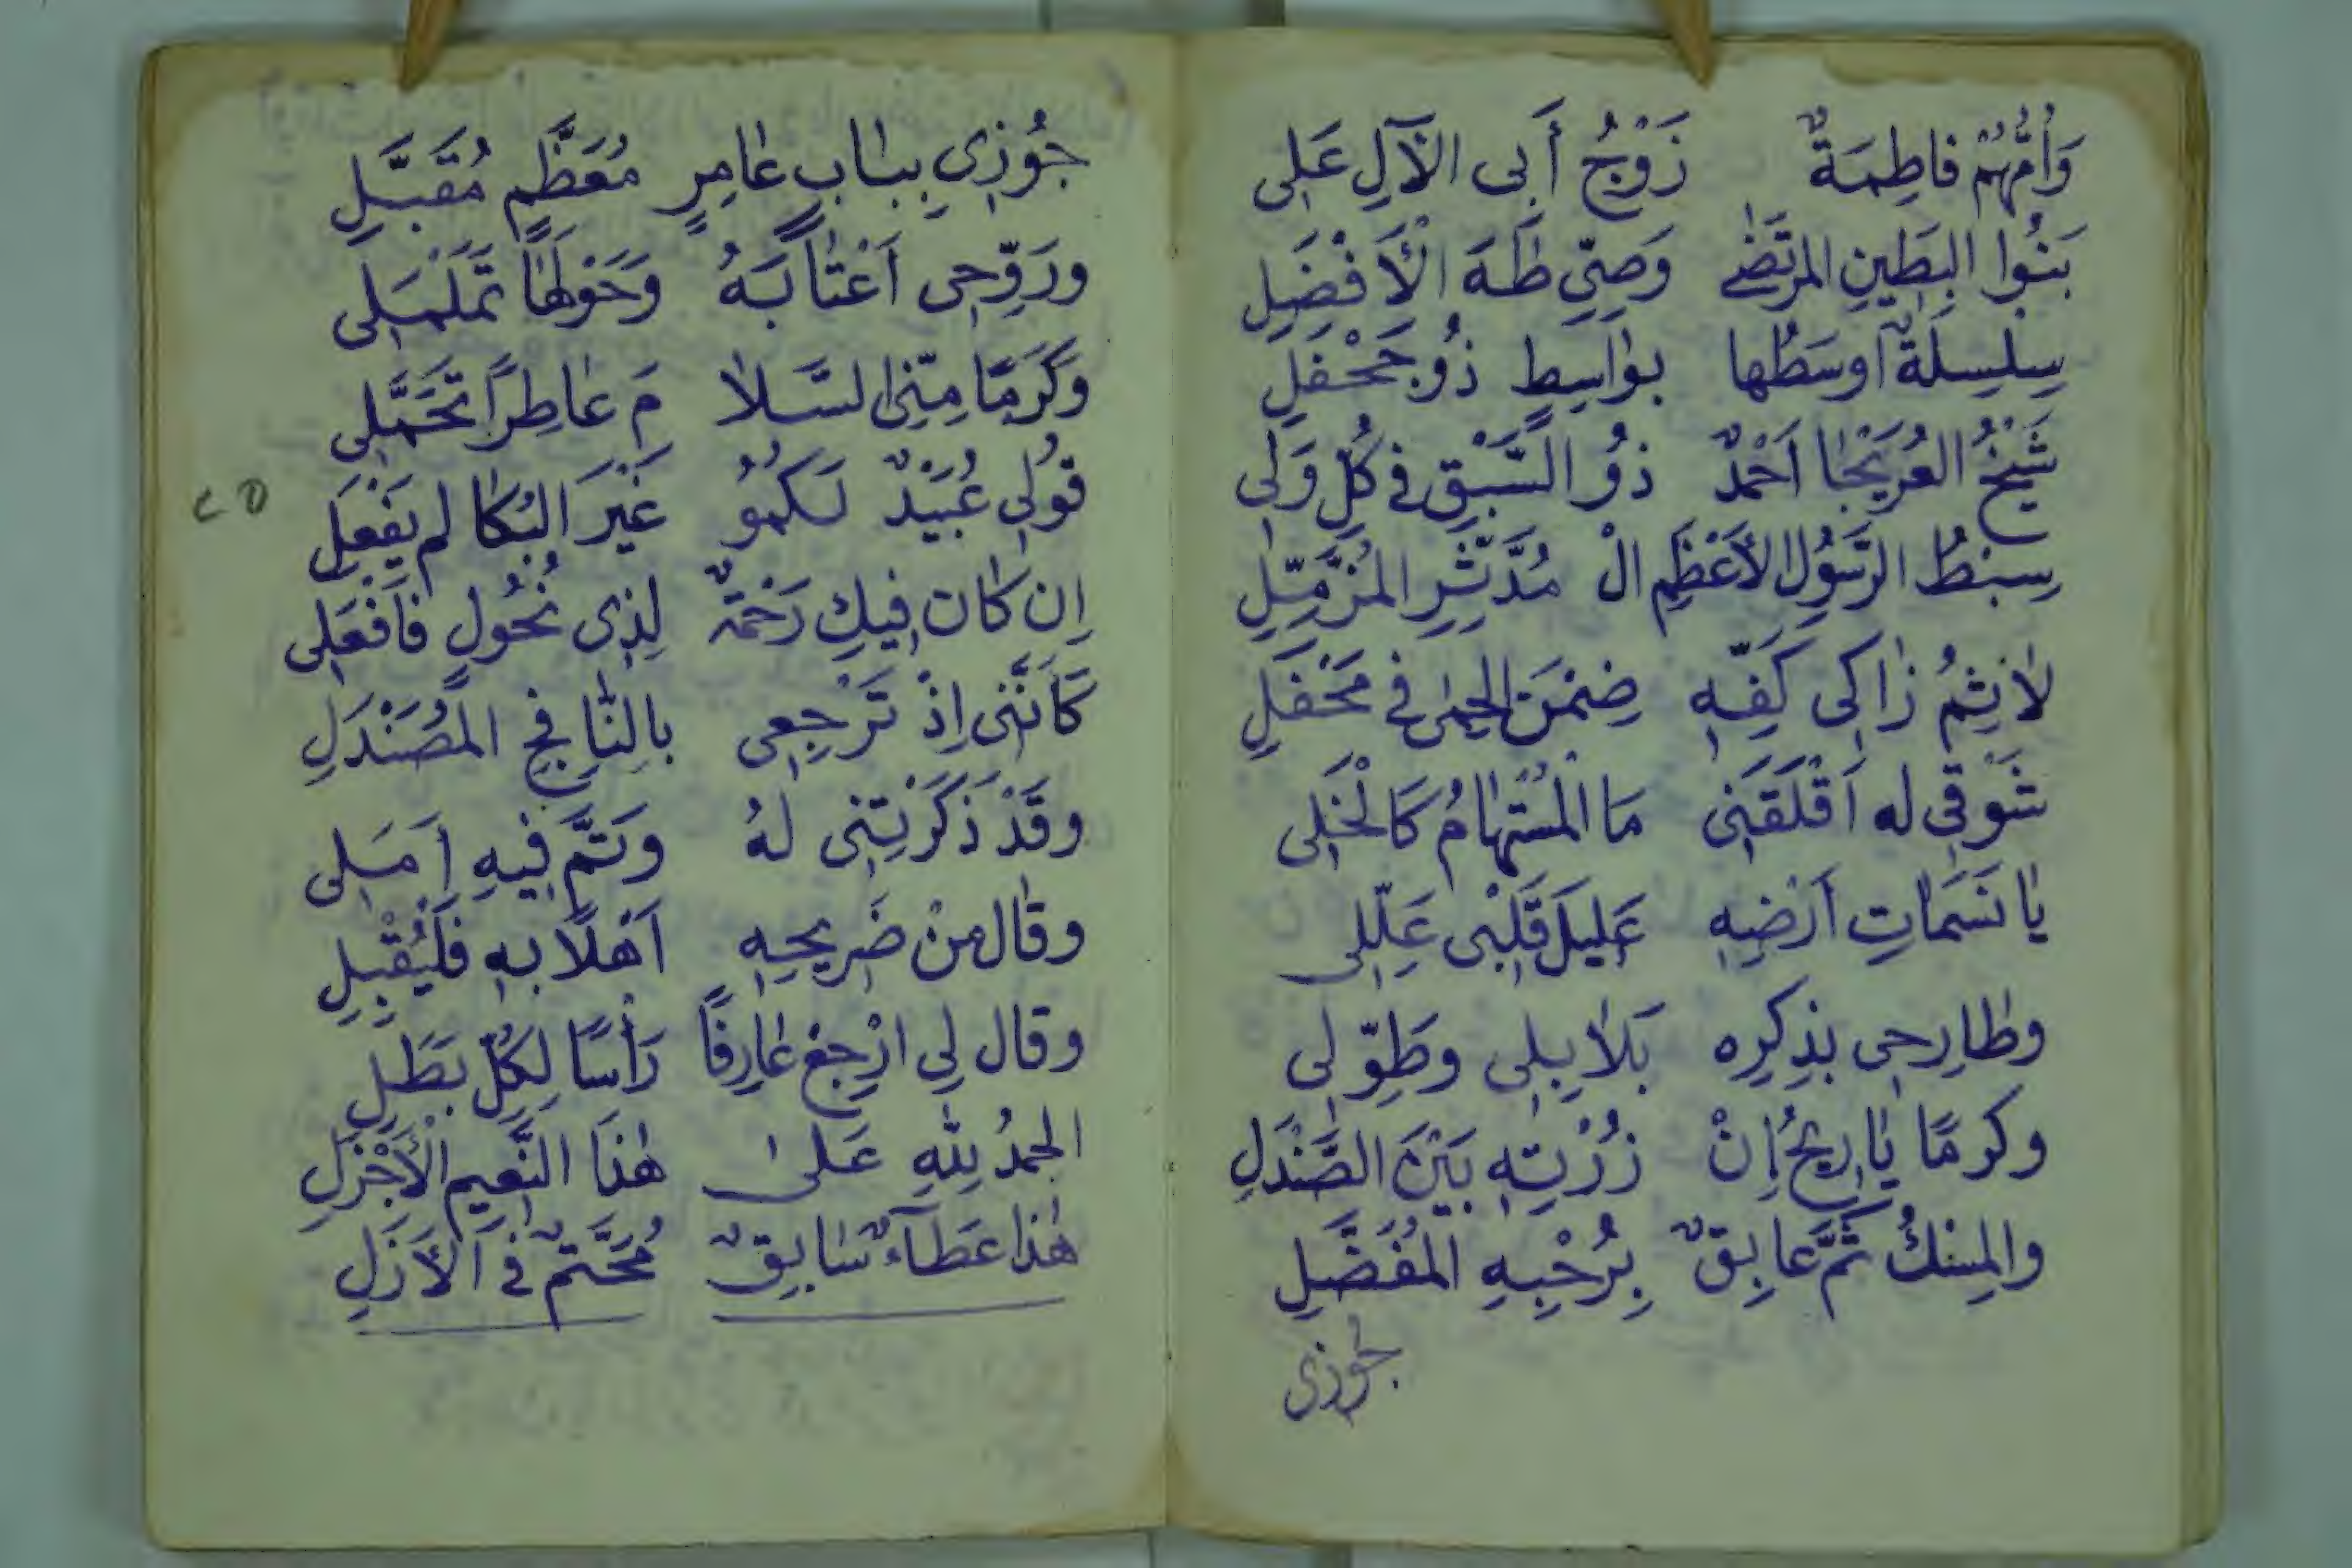 وَأُمُّهُمْ فاطِمَةٌ زَوْجُ أَبى الآلِ عَلِى
بَنُوا البَطِينِ المرتَضٰے وَصِيِّ طٰهَ الْأَفْضَلِ
سِلسِلَةٌ اوسَطُها بوٰاسِطٍ ذُو جَحْفَلِ
شَيْخُ العُرَيْجٰا اَحْمَدٌ ذوُ السَّبْقِ فى كُلِّ وَلى
سِبْطُ الرَّسُولِ الأعْظَمِ الْ مُدَّثِّرِ المُزَّمِّلِ
لاٰثِمُ زٰاكى كَفِّهِ ضِمْنَ الحِمٰى فى مَحْفَلِ
شَوْقى له اَقْلَقَنِى مَا المُسْتَهٰامُ كَالْخَلِى
يٰا نَسَمٰاتِ اَرْضِهِ عَلِيلَ قَلْبى عَلِّلِى
وطٰارِحِى بذِكرِه بَلاٰبِلى وطَوِّلى
وكرمًا يٰا رِيحُ اِنْ زُرْتِهِ بَيْنَ الصَّنْدَلِ
والمِسْكُ ثَمَّ عابِقٌ بِرُحْبِهِ المُفَضَّلِ
جُوزى
جُوْزِى بِبٰابٍ عٰامِرٍ مُعَظَّمٍ مُقَبَّلِ
ورَوِّحِى اَعْتٰابَهُ وَحَوْلَهٰا تَمَلْمَلِى
وَكَرَمًا مِنِّى السَّلاٰ مَ عٰاطِرًا تَحَمَّلِى
قوُلى عُبَيْدٌ لَكمُو غَيْرَ البُكٰا لم يَفْعَلِ
اِن كٰان فِيكِ رَحْمَةٌ لِذِى نُحُولٍ فَافْعَلِى
كَأَنَّنى اِذْ تَرْجِعِى بالنّٰافِحِ المُصَنْدَلِ
وقَدْ ذَكَرْتِنى لهُ وَتَمَّ فِيهِ اَمَلِى
وقٰال مِنْ ضَرِيحِهِ اَهْلًا بِهِ فَلْيُقْبِلِ
وقال لِى ارْجِعْ عٰارِفًا رَأْسًا لِكُلِّ بَطَلِ
الحمدُ لِلّٰهِ عَلىٰ هٰذَا النَّعِيمِ الْأَجْزَلِ
هٰذا عَطَآءٌ سٰابِقٌ مُحَتَّمٌ فى الأزَلِ